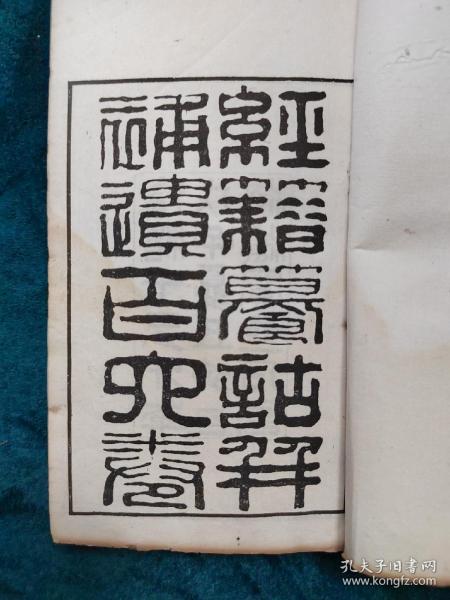 經籍籑詁并
補遺百六卷
孔夫子旧书网
www.kongfz.com